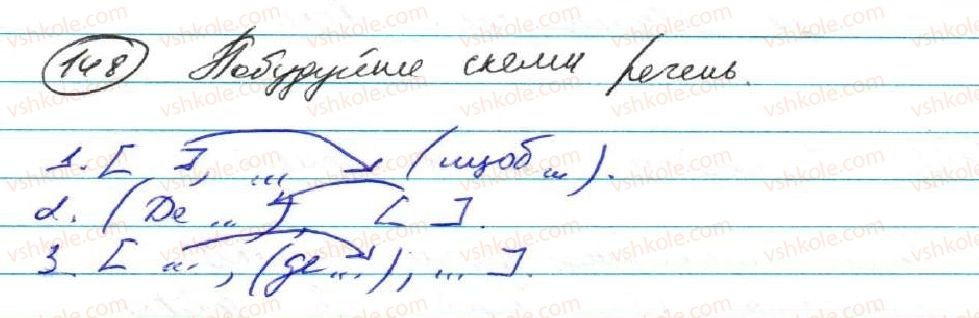 148 Побудуйте схеми речень.
1. [ ], ... (щоб ...).
2. (Де ...), [ ].
3. [ ..., (де ...), ... ].